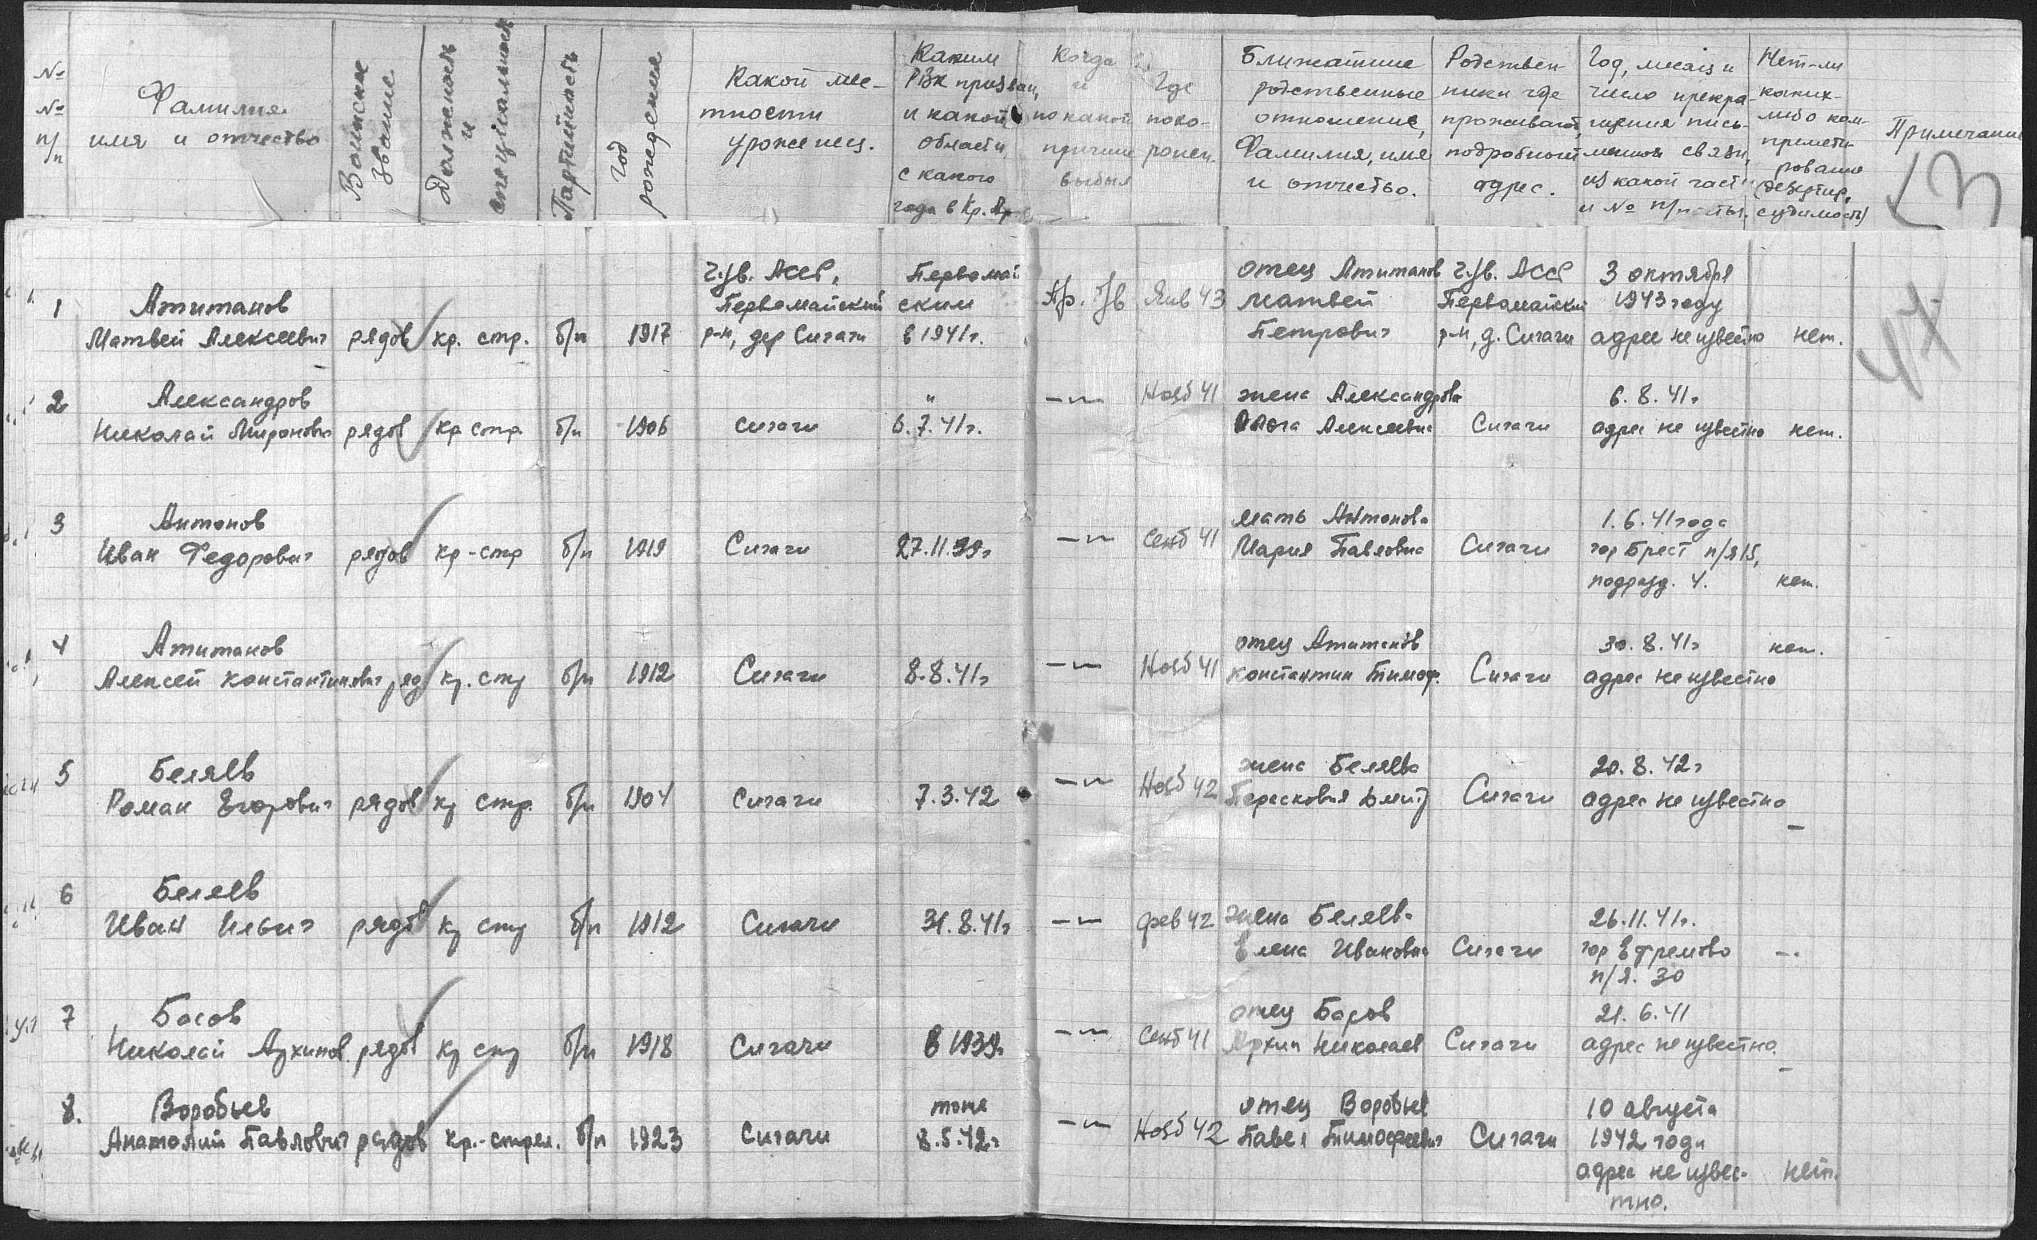 № № п/п
Фамилия имя и отчество
Воинские звание
Должность и специальность
Партийность
Год рождения
Какой местности уроженец.
Каким РВК призван, и какой области, с какого года в Кр. Ар.
Когда и по какой причине выбыл
Где похоронен.
Ближайшие родственные отношение, Фамилия, имя и отчество.
Родственники где проживают, подробный адрес.
Год, месяц и число прекращения письменной связи, из какой части и № п/почты.
Нет-ли каких-либо компрометирование (дезертир, судимость)
Примечание
47
1 Атитанов Матвей Алексеевич рядов кр. стр. б/п 1917 Чув. АССР, Первомайский р-н, дер Сигачи Первомайским в 1941г. Янв 43 отец Атитанов Матвей Петрович Чув. АССР Первомайский р-н, д. Сигачи 3 октября 1943 году адрес не известно нет.
2 Александров Николай Миронович рядов кр стр б/п 1906 Сигачи " 6.7.41г. —"— Нояб 41 жена Александрова Алексеевна Сигачи 6.8.41г адрес не известно нет.
3 Антонов Иван Федорович рядов кр-стр б/п 1919 Сигачи 27.11.39г —"— Сент 41 мать Антонова Мария Павловна Сигачи 1.6.41года гор Брест п/я 15, подразд. 4. нет.
4 Атитанов Алексей Константинович ряд кр. стр б/п 1912 Сигачи 8.8.41г —"— Нояб 41 отец Атитанов Константин Тимоф. Сигачи 30.8.41г адрес не известно нет.
5 Беляев Роман Егорович рядов кр стр. б/п 1904 Сигачи 7.3.42 —"— Нояб 42 жена Беляева Парасковия Дмит Сигачи 20.8.42г адрес не известно —
6 Беляев Иван Ильич рядов кр стр б/п 1912 Сигачи 31.8.41г —"— фев 42 жена Беляева Елена Ивановна Сигачи 26.11.41г. гор Ефремово п/я. 30 —
7 Басов Николай Архипов рядов кр стр б/п 1918 Сигачи в 1939г —"— Сент 41 отец Басов Архип Николаев Сигачи 21.6.41 адрес не известно. —
8. Воробьев Анатолий Павлович рядов кр.-стрел. б/п 1923 Сигачи тоже 8.5.42г —"— Нояб 42 отец Воробьев Павел Тимофеевич Сигачи 10 августа 1942 года адрес не известно. нет.